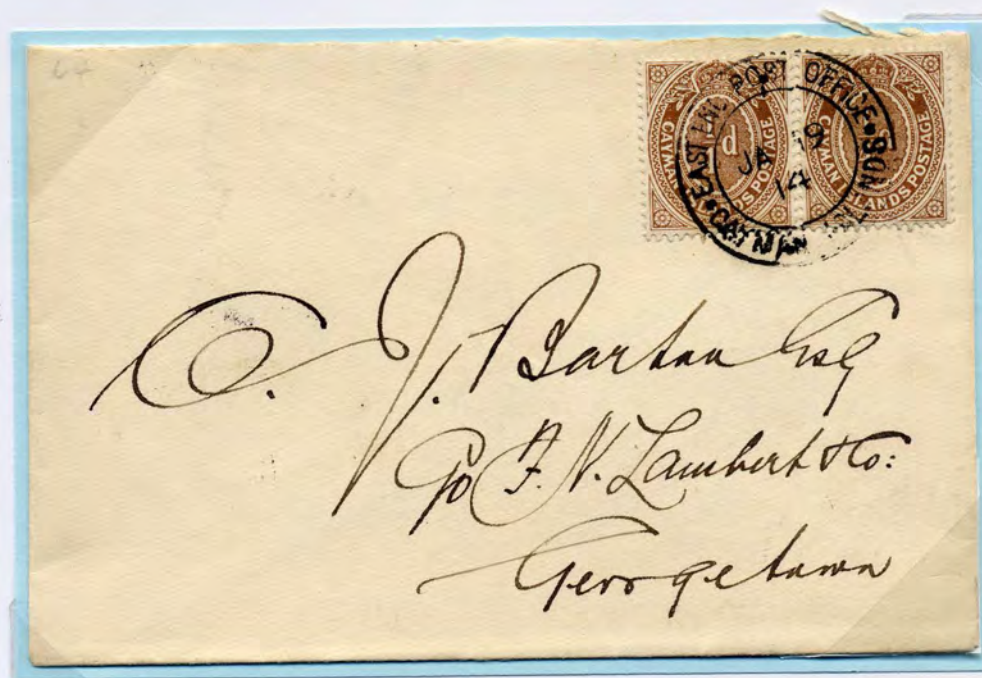 64
CAYMAN ISLANDS POSTAGE
d
CAYMAN ISLANDS POSTAGE
EAST END POST OFFICE • • CAYMAN
JA 19
14
O. J. Barton Esq
c/o F. N. Lambert & Co:
Georgetown